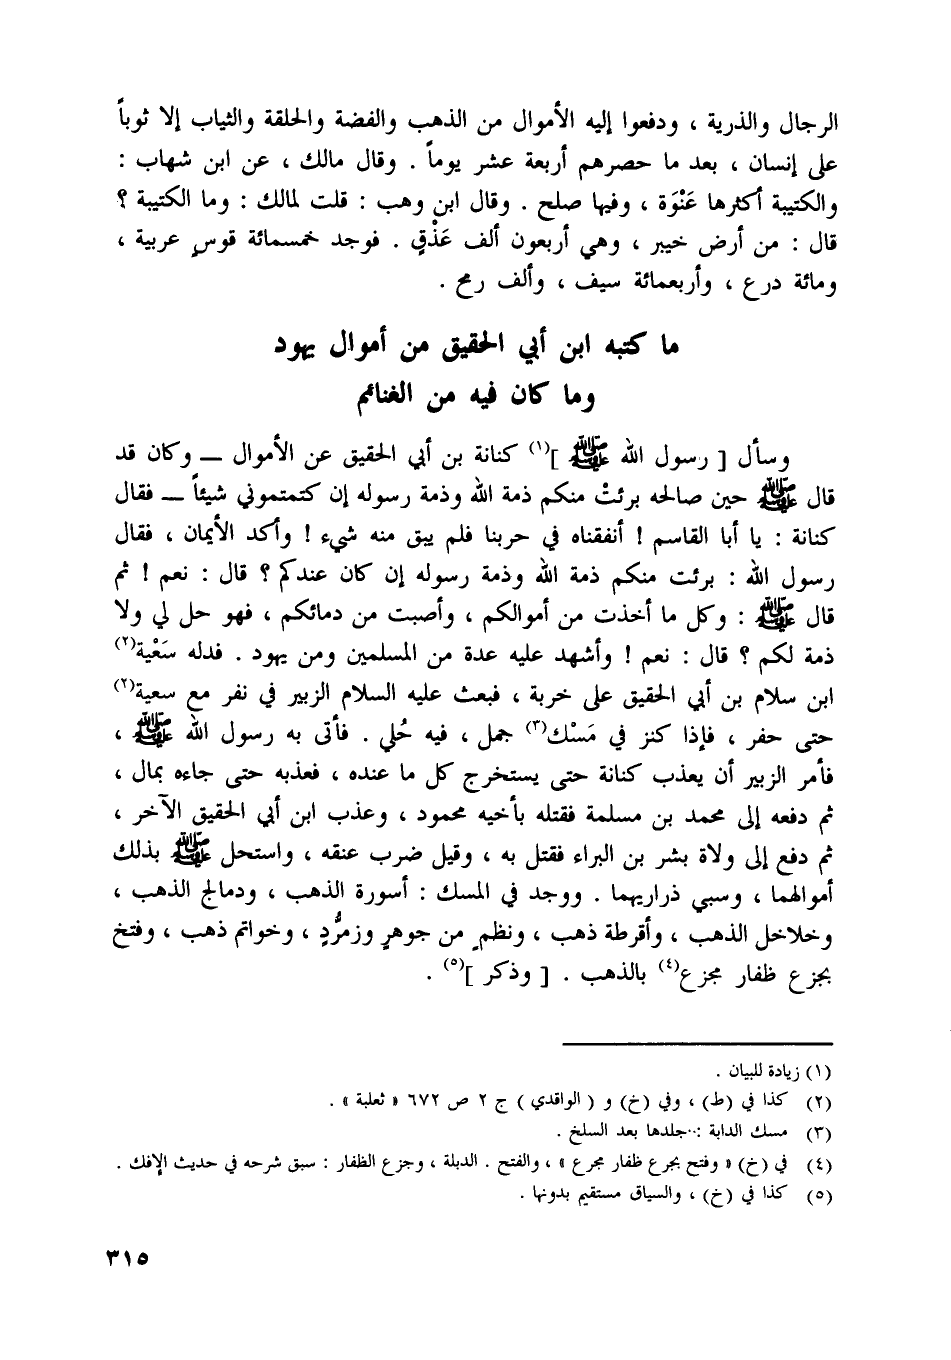 الرجال والذرية ، ودفعوا إليه الأموال من الذهب والفضة والحلقة والثياب إلا ثوباً
على إنسان ، بعد ما حصرهم أربعة عشر يوماً . وقال مالك ، عن ابن شهاب :
والكتيبة أكثرها عَنْوَة ، وفيها صلح . وقال ابن وهب : قلت لمالك : وما الكتيبة ؟
قال : من أرض خيبر ، وهي أربعون ألف عَذْقٍ . فوجد خمسمائة قوسٍ عربية ،
ومائة درع ، وأربعمائة سيف ، وألف رمح .
ما كتبه ابن أبي الحقيق من أموال يهود
وما كان فيه من الغنائم
وسأل [ رسول الله ﷺ ](١) كنانة بن أبي الحقيق عن الأموال — وكان قد
قال ﷺ حين صالحه برئتْ منكم ذمة الله وذمة رسوله إن كتمتموني شيئاً — فقال
كنانة : يا أبا القاسم ! أنفقناه في حربنا فلم يبق منه شيء ! وأكد الأيمان ، فقال
رسول الله : برئت منكم ذمة الله وذمة رسوله إن كان عندكم ؟ قال : نعم ! ثم
قال ﷺ : وكل ما أخذت من أموالكم ، وأصبت من دمائكم ، فهو حل لي ولا
ذمة لكم ؟ قال : نعم ! وأشهد عليه عدة من المسلمين ومن يهود . فدله سَعْية(٢)
ابن سلام بن أبي الحقيق على خربة ، فبعث عليه السلام الزبير في نفر مع سعية(٢)
حتى حفر ، فإذا كنز في مَسْك(٣) جمل ، فيه حُلي . فأتى به رسول الله ﷺ ،
فأمر الزبير أن يعذب كنانة حتى يستخرج كل ما عنده ، فعذبه حتى جاءه بمال ،
ثم دفعه إلى محمد بن مسلمة فقتله بأخيه محمود ، وعذب ابن أبي الحقيق الآخر ،
ثم دفع إلى ولاة بشر بن البراء فقتل به ، وقيل ضرب عنقه ، واستحل ﷺ بذلك
أموالهما ، وسبي ذراريهما . ووجد في المسك : أسورة الذهب ، ودمالج الذهب ،
وخلاخل الذهب ، وأقرطة ذهب ، ونظمٍ من جوهرٍ وزمرُّدٍ ، وخواتم ذهب ، وفتخ
بجزع ظفار مجزع(٤) بالذهب . [ وذكر ](٥) .
(١) زيادة للبيان .
(٢) كذا في (ط) ، وفي (خ) و ( الواقدي ) ج ٢ ص ٦٧٢ « ثعلبة » .
(٣) مسك الدابة : جلدها بعد السلخ .
(٤) في (خ) « وفتح بجرع ظفار مجرع » ، والفتح . الدبلة ، وجزع الظفار : سبق شرحه في حديث الإفك .
(٥) كذا في (خ) ، والسياق مستقيم بدونها .
٣١٥